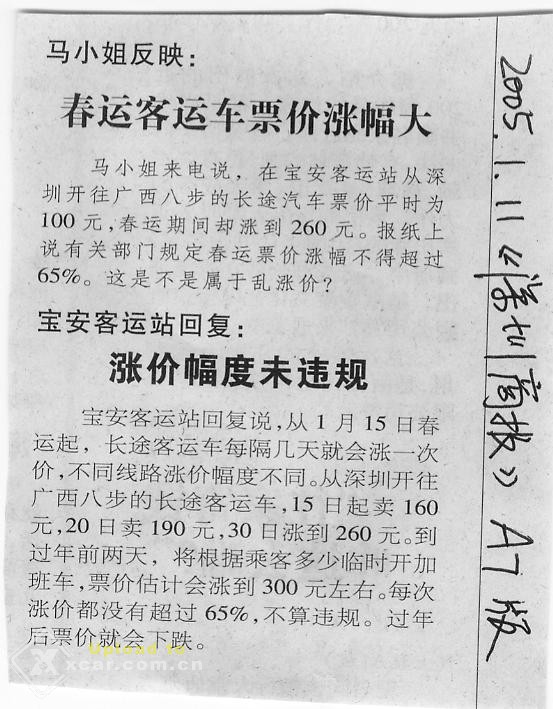 马小姐反映：
春运客运车票价涨幅大
马小姐来电说，在宝安客运站从深
圳开往广西八步的长途汽车票价平时为
100元，春运期间却涨到260元。报纸上
说有关部门规定春运票价涨幅不得超过
65%。这是不是属于乱涨价？
宝安客运站回复：
涨价幅度未违规
宝安客运站回复说，从1月15日春
运起，长途客运车每隔几天就会涨一次
价，不同线路涨价幅度不同。从深圳开往
广西八步的长途客运车，15日起卖160
元，20日卖190元，30日涨到260元。到
过年前两天，将根据乘客多少临时开加
班车，票价估计会涨到300元左右。每次
涨价都没有超过65%，不算违规。过年
后票价就会下跌。
2005.1.11《深圳商报》A7版
Upload to
xcar.com.cn